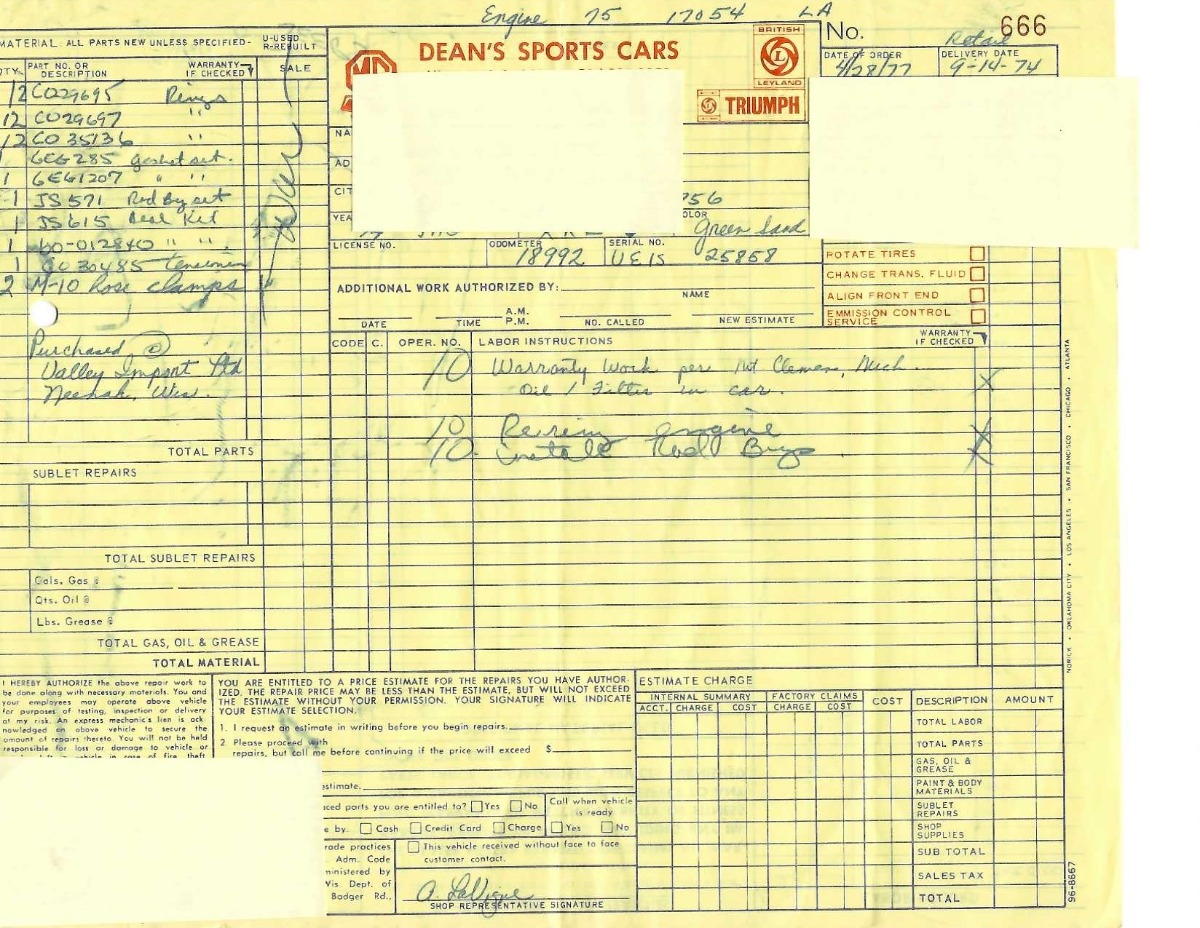 Engine 75 17054 LA
No. 666
MATERIAL: ALL PARTS NEW UNLESS SPECIFIED-
U-USED
R-REBUILT
DEAN'S SPORTS CARS
MG
BRITISH
L
LEYLAND
TRIUMPH
Retail
DATE OF ORDER
4/28/77
DELIVERY DATE
9-14-74
QTY. PART NO. OR DESCRIPTION WARRANTY IF CHECKED SALE
12 CO29695 Rings
12 CO29697 " "
12 CO 35136 " "
1 GEG285 gasket set.
1 GEG1207 " "
1 JS571 Rod Brg set
1 JS615 Seal Kit
1 60-012840 " "
1 GO30485 Tensioner
2 M-10 Hose clamps
Purchased @
Valley Import Ltd
Neenah, Wis.
NA
AD
CIT
756
YEA
OLOR
Green Sand
LICENSE NO.
ODOMETER
18992
SERIAL NO.
UE15 25858
ROTATE TIRES
CHANGE TRANS. FLUID
ALIGN FRONT END
EMMISSION CONTROL SERVICE
ADDITIONAL WORK AUTHORIZED BY:
NAME
DATE TIME A.M. P.M. NO. CALLED NEW ESTIMATE
CODE C. OPER. NO. LABOR INSTRUCTIONS WARRANTY IF CHECKED
10 Warranty Work per Mt Clemens, Mich.
Oil / Filter in car. X
10 Rering engine X
10 install Rod Brgs X
TOTAL PARTS
SUBLET REPAIRS
TOTAL SUBLET REPAIRS
Gals. Gas @
Qts. Oil @
Lbs. Grease @
TOTAL GAS, OIL & GREASE
TOTAL MATERIAL
NORICK • OKLAHOMA CITY • LOS ANGELES • SAN FRANCISCO • CHICAGO • ATLANTA
I HEREBY AUTHORIZE the above repair work to
be done along with necessary materials. You and
your employees may operate above vehicle
for purposes of testing, inspection or delivery
at my risk. An express mechanic's lien is ack-
nowledged on above vehicle to secure the
amount of repairs thereto. You will not be held
responsible for loss or damage to vehicle or
vehicle in case of fire, theft
YOU ARE ENTITLED TO A PRICE ESTIMATE FOR THE REPAIRS YOU HAVE AUTHOR-
IZED. THE REPAIR PRICE MAY BE LESS THAN THE ESTIMATE, BUT WILL NOT EXCEED
THE ESTIMATE WITHOUT YOUR PERMISSION. YOUR SIGNATURE WILL INDICATE
YOUR ESTIMATE SELECTION.
1. I request an estimate in writing before you begin repairs.
2. Please proceed with
repairs, but call me before continuing if the price will exceed $
stimate.
ced parts you are entitled to? Yes No
Call when vehicle
is ready
Yes No
e by. Cash Credit Card Charge
rade practices
. Adm. Code
ministered by
Wis Dept. of
Badger Rd.,
This vehicle received without face to face
customer contact.
A. LaVigne
SHOP REPRESENTATIVE SIGNATURE
ESTIMATE CHARGE
INTERNAL SUMMARY FACTORY CLAIMS COST DESCRIPTION AMOUNT
ACCT. CHARGE COST CHARGE COST
TOTAL LABOR
TOTAL PARTS
GAS, OIL & GREASE
PAINT & BODY MATERIALS
SUBLET REPAIRS
SHOP SUPPLIES
SUB TOTAL
SALES TAX
TOTAL
96-8667